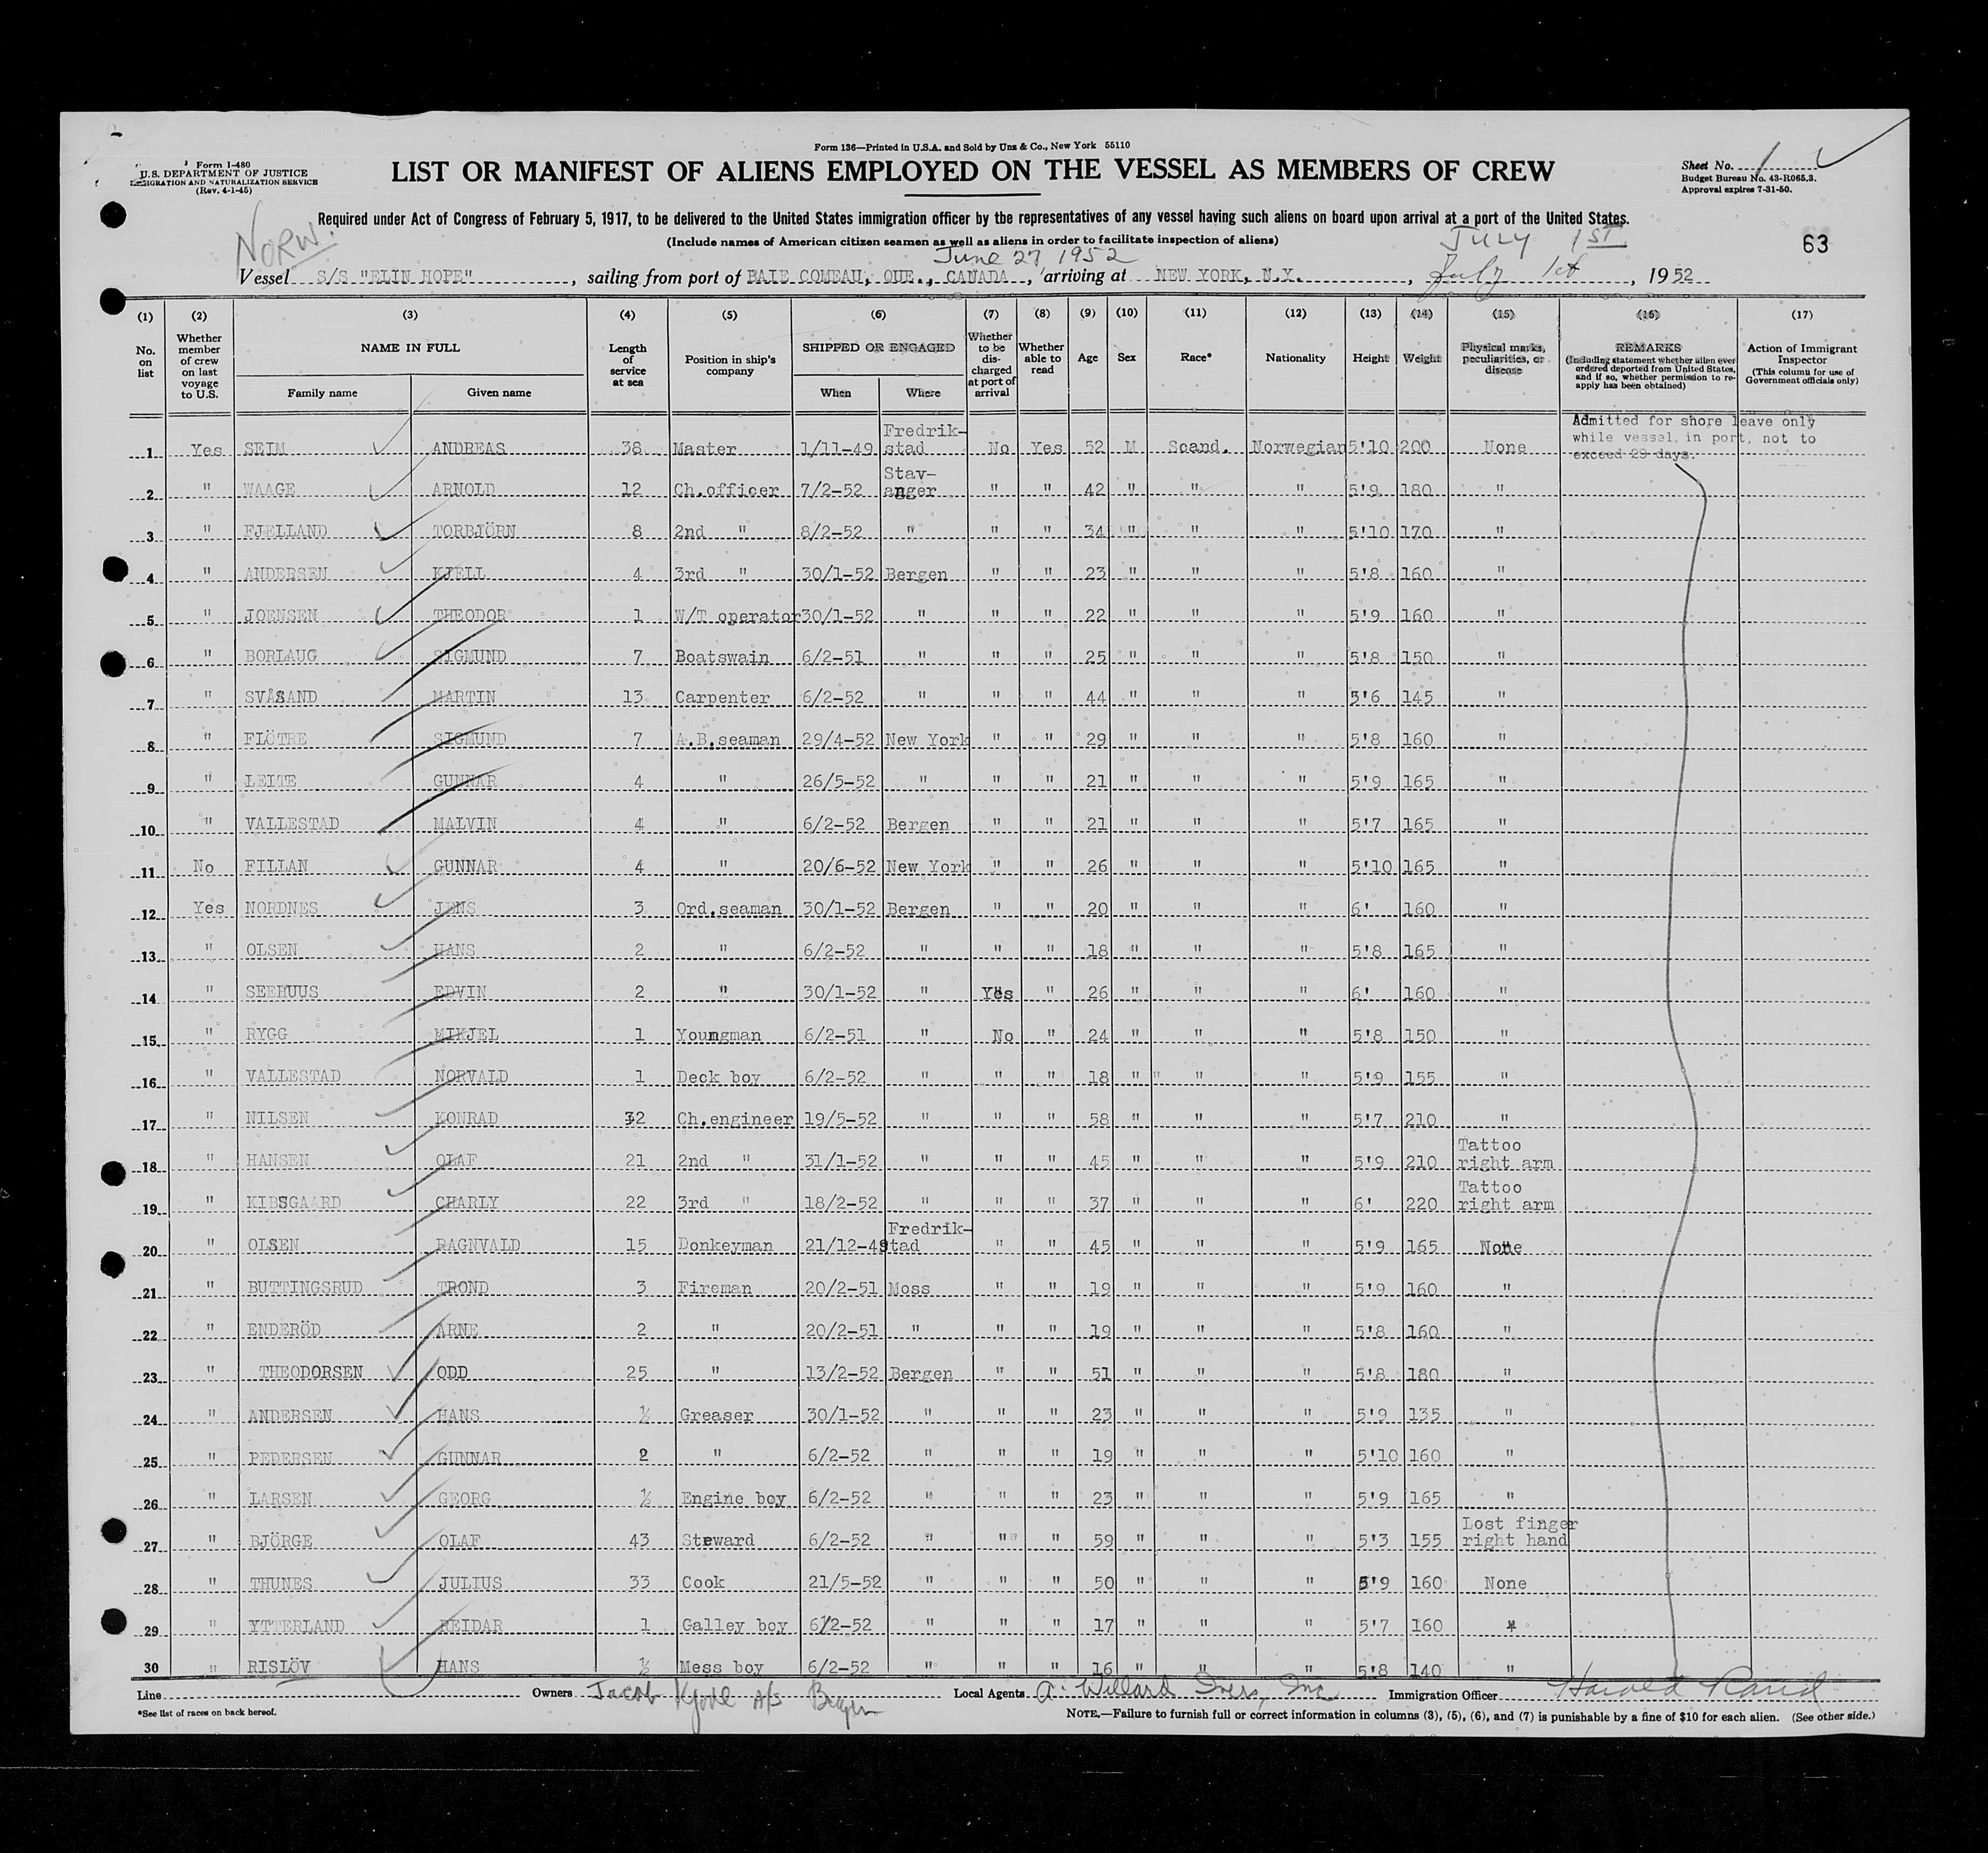 Form 136—Printed in U.S.A. and Sold by Unz & Co., New York 55110
Form I-480
U.S. DEPARTMENT OF JUSTICE
IMMIGRATION AND NATURALIZATION SERVICE
(Rev. 4-1-45)
LIST OR MANIFEST OF ALIENS EMPLOYED ON THE VESSEL AS MEMBERS OF CREW
Sheet No. 1
Budget Bureau No. 43-R065.3.
Approval expires 7-31-50.
Required under Act of Congress of February 5, 1917, to be delivered to the United States immigration officer by the representatives of any vessel having such aliens on board upon arrival at a port of the United States.
(Include names of American citizen seamen as well as aliens in order to facilitate inspection of aliens)
NORW.
June 27 1952
JULY 1ST
63
Vessel S/S "ELIN HOPE", sailing from port of BAIE COMEAU, QUE., CANADA, arriving at NEW YORK, N.Y., July 1st, 1952
(1) (2) (3) (4) (5) (6) (7) (8) (9) (10) (11) (12) (13) (14) (15) (16) (17)
No. on list
Whether member of crew on last voyage to U.S.
NAME IN FULL
Family name Given name
Length of service at sea
Position in ship's company
SHIPPED OR ENGAGED
When Where
Whether to be discharged at port of arrival
Whether able to read
Age
Sex
Race*
Nationality
Height
Weight
Physical marks, peculiarities, or disease
REMARKS
(Including statement whether alien ever ordered deported from United States, and if so, whether permission to reapply has been obtained)
Action of Immigrant Inspector
(This column for use of Government officials only)
Admitted for shore leave only
while vessel in port, not to
exceed 29 days.
1 Yes SEIM ANDREAS 38 Master 1/11-49 Fredrikstad No Yes 52 M Scand. Norwegian 5'10 200 None
2 " WAAGE ARNOLD 12 Ch.officer 7/2-52 Stavanger " " 42 " " " 5'9 180 "
3 " FJELLAND TORBJÖRN 8 2nd " 8/2-52 " " " 34 " " " 5'10 170 "
4 " ANDERSEN KJELL 4 3rd " 30/1-52 Bergen " " 23 " " " 5'8 160 "
5 " JOENSEN THEODOR 1 W/T operator 30/1-52 " " " 22 " " " 5'9 160 "
6 " BORLAUG SIGMUND 7 Boatswain 6/2-51 " " " 25 " " " 5'8 150 "
7 " SVÅSAND MARTIN 13 Carpenter 6/2-52 " " " 44 " " " 5'6 145 "
8 " FLÖTRE SIGMUND 7 A.B.seaman 29/4-52 New York " " 29 " " " 5'8 160 "
9 " LEITE GUNNAR 4 " 26/5-52 " " " 21 " " " 5'9 165 "
10 " VALLESTAD MALVIN 4 " 6/2-52 Bergen " " 21 " " " 5'7 165 "
11 No FILLAN GUNNAR 4 " 20/6-52 New York " " 26 " " " 5'10 165 "
12 Yes NORDNES JENS 3 Ord.seaman 30/1-52 Bergen " " 20 " " " 6' 160 "
13 " OLSEN HANS 2 " 6/2-52 " " " 18 " " " 5'8 165 "
14 " SEEHUUS EDVIN 2 " 30/1-52 " Yes " 26 " " " 6' 160 "
15 " RYGG MIKJEL 1 Youngman 6/2-51 " No " 24 " " " 5'8 150 "
16 " VALLESTAD NORVALD 1 Deck boy 6/2-52 " " " 18 " " " 5'9 155 "
17 " NILSEN KONRAD 32 Ch.engineer 19/5-52 " " " 58 " " " 5'7 210 "
18 " HANSEN OLAF 21 2nd " 31/1-52 " " " 45 " " " 5'9 210 Tattoo right arm
19 " KIBSGAARD CHARLY 22 3rd " 18/2-52 " " " 37 " " " 6' 220 Tattoo right arm
20 " OLSEN RAGNVALD 15 Donkeyman 21/12-49 Fredrikstad " " 45 " " " 5'9 165 None
21 " BUTTINGSRUD TROND 3 Fireman 20/2-51 Moss " " 19 " " " 5'9 160 "
22 " ENDERÖD ARNE 2 " 20/2-51 " " " 19 " " " 5'8 160 "
23 " THEODORSEN ODD 25 " 13/2-52 Bergen " " 51 " " " 5'8 180 "
24 " ANDERSEN HANS ½ Greaser 30/1-52 " " " 23 " " " 5'9 135 "
25 " PEDERSEN GUNNAR 2 " 6/2-52 " " " 19 " " " 5'10 160 "
26 " LARSEN GEORG ½ Engine boy 6/2-52 " " " 23 " " " 5'9 165 "
27 " BJÖRGE OLAF 43 Steward 6/2-52 " " " 59 " " " 5'3 155 Lost finger right hand
28 " THUNES JULIUS 33 Cook 21/5-52 " " " 50 " " " 5'9 160 None
29 " YTTERLAND REIDAR 1 Galley boy 6/2-52 " " " 17 " " " 5'7 160 "
30 " RISLÖV HANS ½ Mess boy 6/2-52 " " " 16 " " " 5'8 140 "
Line Owners Jacob Kjöde A/S Bergen Local Agents A. Willard Ivers, Inc Immigration Officer Harold Rand
*See list of races on back hereof.
NOTE.—Failure to furnish full or correct information in columns (3), (5), (6), and (7) is punishable by a fine of $10 for each alien. (See other side.)